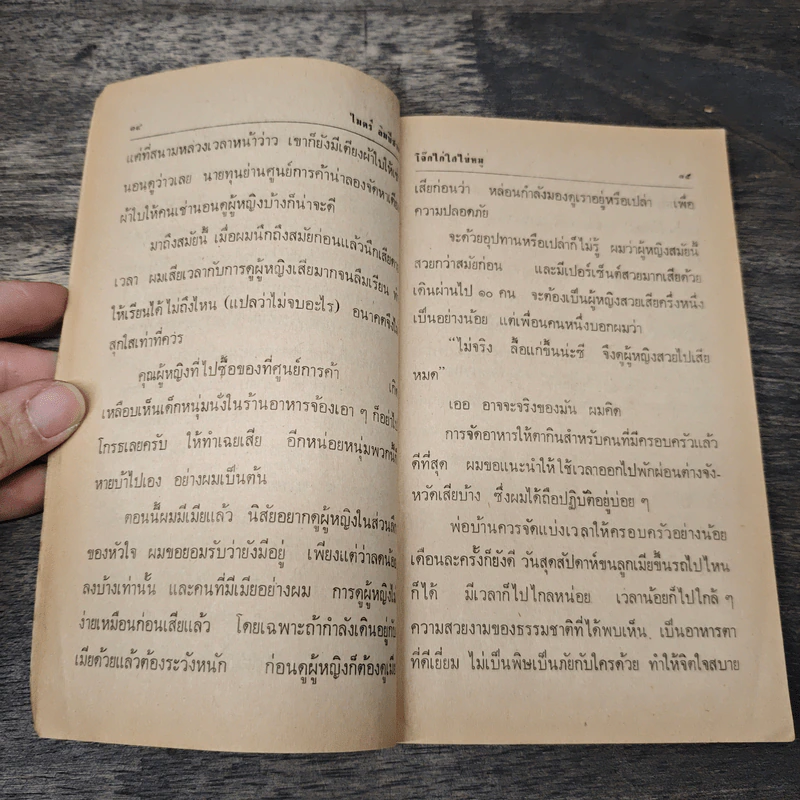 ๑๔
ไมตรี
แต่ที่สนามหลวงเวลาหน้าว่าว เขาก็ยังมีเตียงผ้าใบให้เช่า
นอนดูว่าวเลย นายทุนย่านศูนย์การค้าน่าลองจัดหาเตียง
ผ้าใบให้คนเช่านอนดูผู้หญิงบ้างก็น่าจะดี
มาถึงสมัยนี้ เมื่อผมนึกถึงสมัยก่อนแล้วนึกเสียดาย
เวลา ผมเสียเวลากับการดูผู้หญิงเสียมากจนลืมเรียน ทำ
ให้เรียนได้ไม่ถึงไหน (แปลว่าไม่จบอะไร) อนาคตจึงไม่
สุกใสเท่าที่ควร
คุณผู้หญิงที่ไปซื้อของที่ศูนย์การค้า เกิด
เหลือบเห็นเด็กหนุ่มนั่งในร้านอาหารจ้องเอา ๆ ก็อย่าไป
โกรธเลยครับ ให้ทำเฉยเสีย อีกหน่อยหนุ่มพวกนี้ก็
หายบ้าไปเอง อย่างผมเป็นต้น
ตอนนี้ผมมีเมียแล้ว นิสัยอยากดูผู้หญิงในส่วนลึก
ของหัวใจ ผมขอยอมรับว่ายังมีอยู่ เพียงแต่ว่าลดน้อย
ลงบ้างเท่านั้น และคนที่มีเมียอย่างผม การดูผู้หญิงไม่
ง่ายเหมือนก่อนเสียแล้ว โดยเฉพาะถ้ากำลังเดินอยู่กับ
เมียด้วยแล้วต้องระวังหนัก ก่อนดูผู้หญิงก็ต้องดูเมีย
โจ๊กไก่ใส่ไข่หมู
๑๕
เสียก่อนว่า หล่อนกำลังมองดูเราอยู่หรือเปล่า เพื่อ
ความปลอดภัย
จะด้วยอุปทานหรือเปล่าก็ไม่รู้ ผมว่าผู้หญิงสมัยนี้
สวยกว่าสมัยก่อน และมีเปอร์เซ็นต์สวยมากเสียด้วย
เดินผ่านไป ๑๐ คน จะต้องเป็นผู้หญิงสวยเสียครึ่งหนึ่ง
เป็นอย่างน้อย แต่เพื่อนคนหนึ่งบอกผมว่า
“ไม่จริง ลื้อแก่ขึ้นน่ะซี จึงดูผู้หญิงสวยไปเสีย
หมด”
เออ อาจจะจริงของมัน ผมคิด
การจัดอาหารให้ตากินสำหรับคนที่มีครอบครัวแล้ว
ดีที่สุด ผมขอแนะนำให้ใช้เวลาออกไปพักผ่อนต่างจัง-
หวัดเสียบ้าง ซึ่งผมได้ถือปฏิบัติอยู่บ่อย ๆ
พ่อบ้านควรจัดแบ่งเวลาให้ครอบครัวอย่างน้อย
เดือนละครั้งก็ยังดี วันสุดสัปดาห์ขนลูกเมียขึ้นรถไปไหน
ก็ได้ มีเวลาก็ไปไกลหน่อย เวลาน้อยก็ไปใกล้ ๆ
ความสวยงามของธรรมชาติที่ได้พบเห็น เป็นอาหารตา
ที่ดีเยี่ยม ไม่เป็นพิษเป็นภัยกับใครด้วย ทำให้จิตใจสบาย